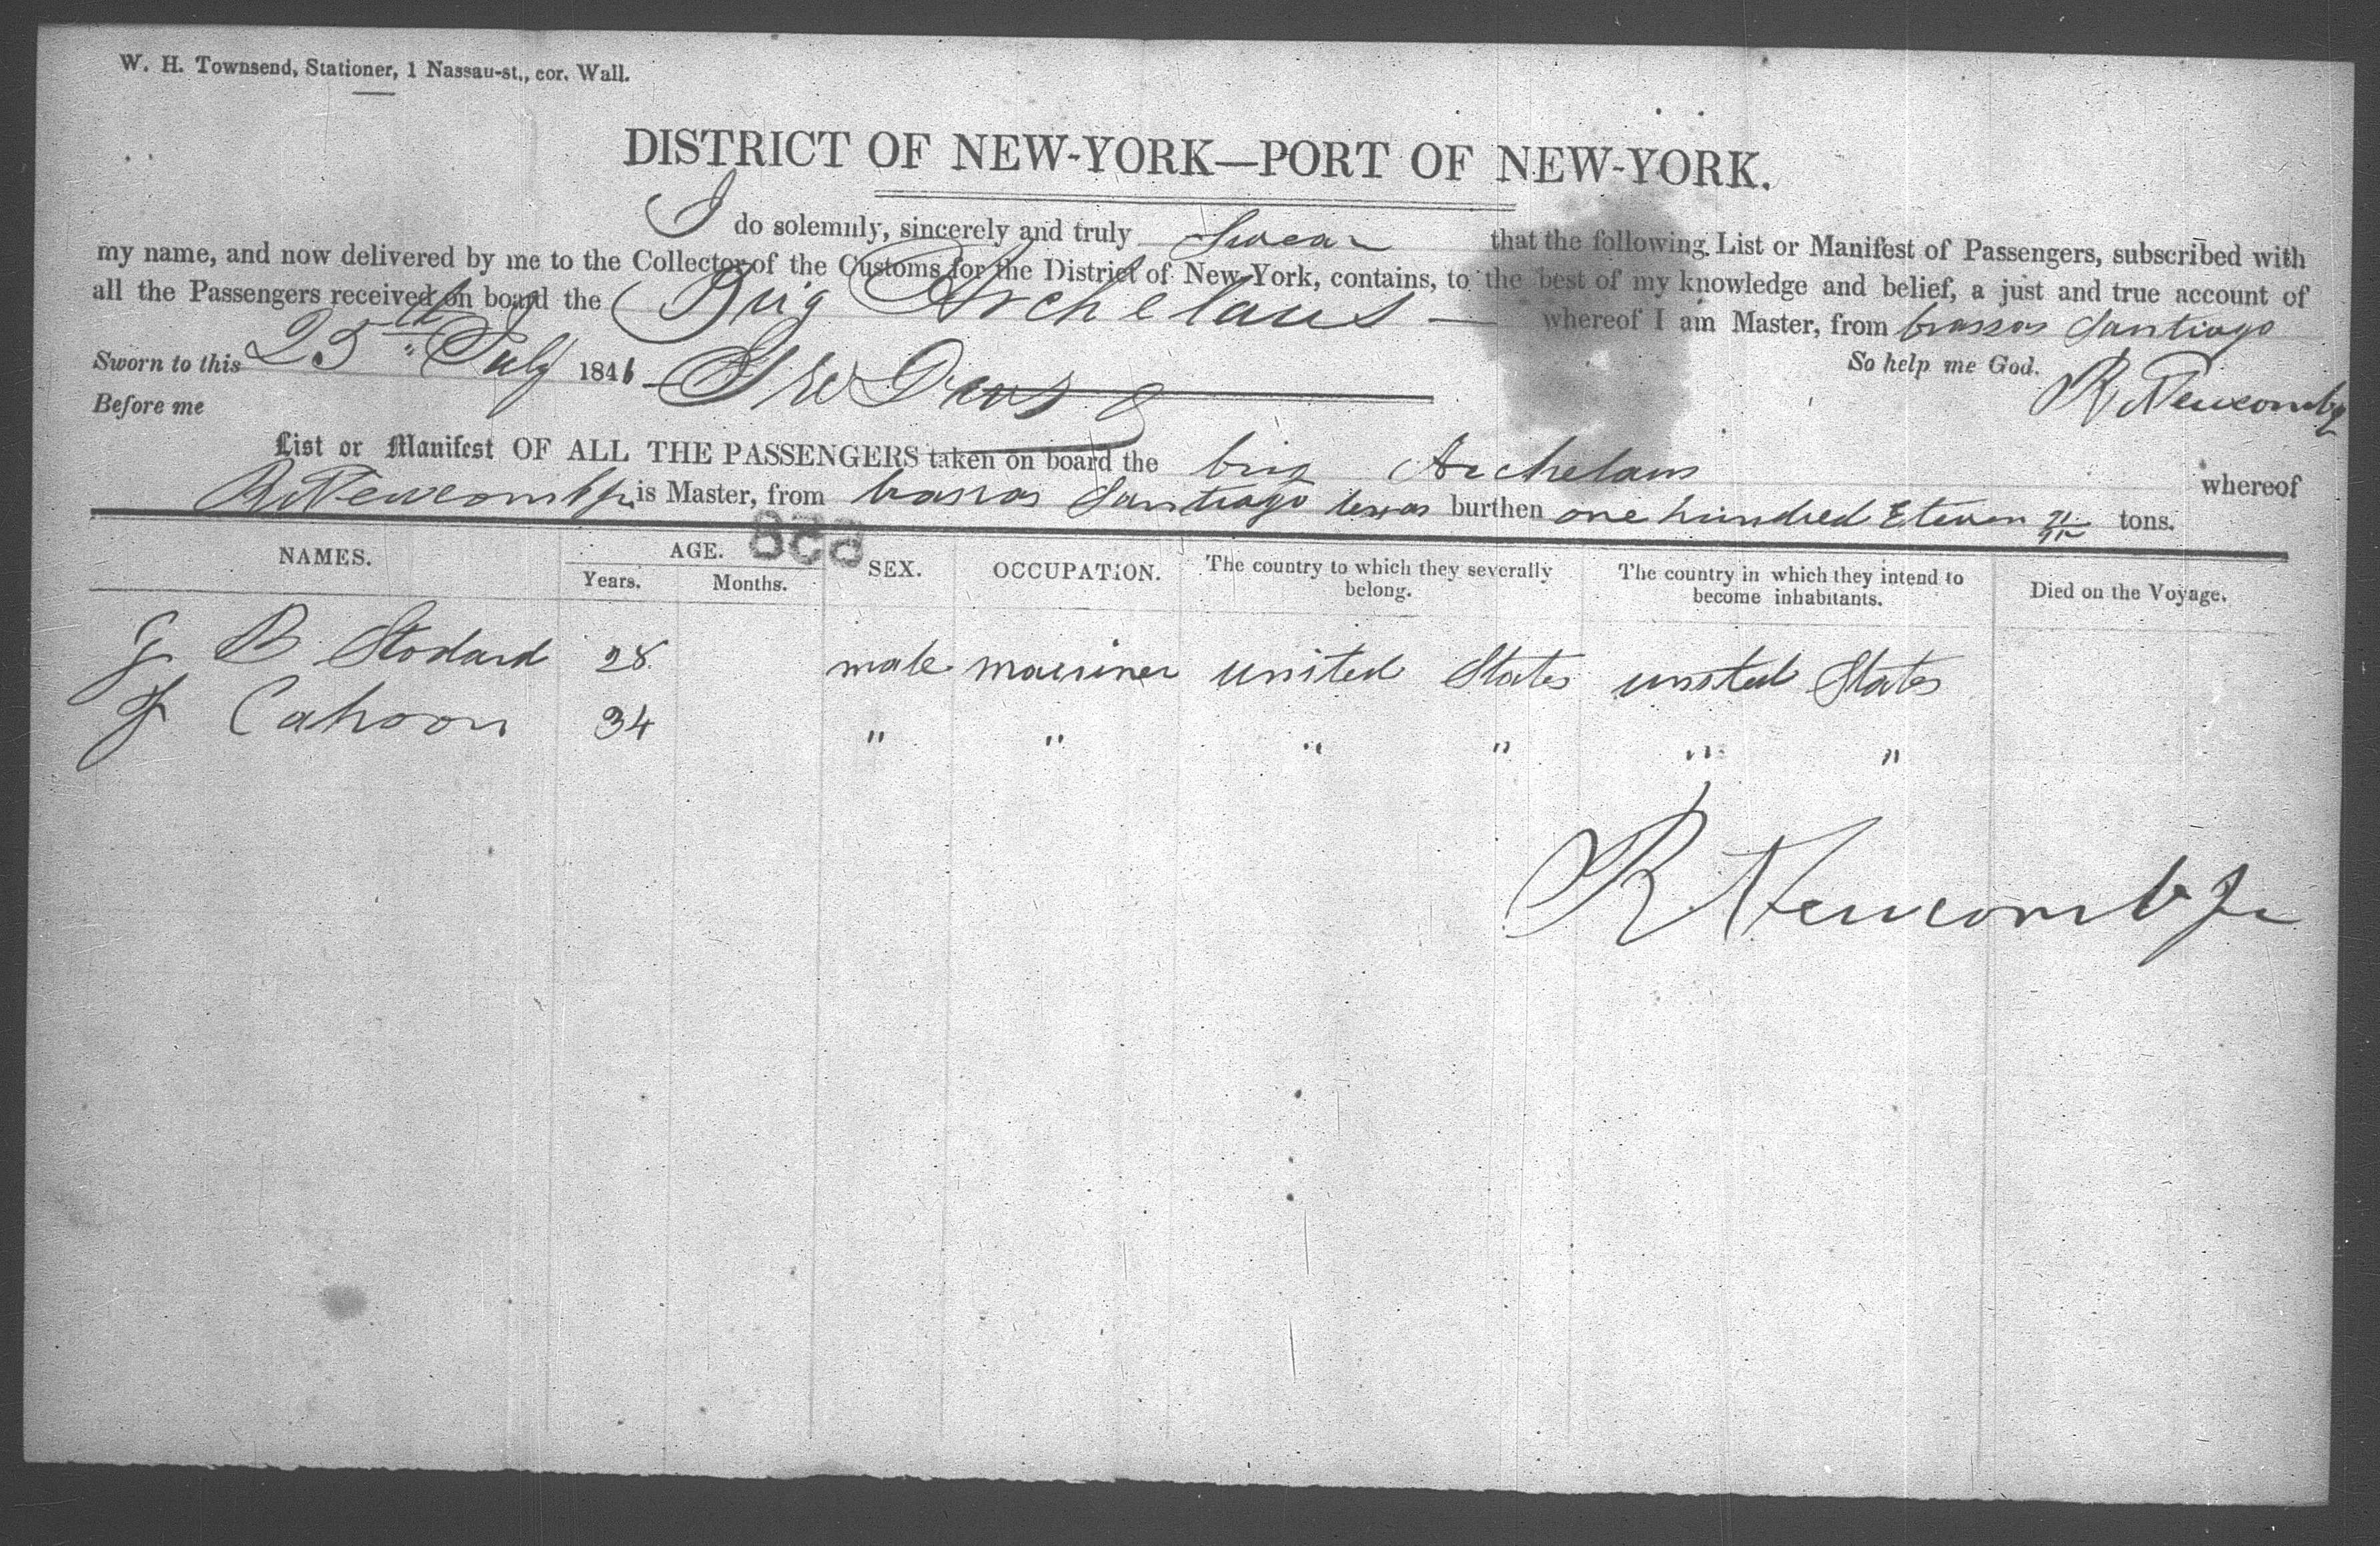 W. H. Townsend, Stationer, 1 Nassau-st., cor. Wall.
DISTRICT OF NEW-YORK—PORT OF NEW-YORK.
I do solemnly, sincerely and truly Swear that the following List or Manifest of Passengers, subscribed with
my name, and now delivered by me to the Collector of the Customs for the District of New-York, contains, to the best of my knowledge and belief, a just and true account of
all the Passengers received on board the Brig Archelaus — whereof I am Master, from brassos Santiago
Sworn to this 25th July 1846 So help me God. R Newcomb Jr
Before me
List or Manifest OF ALL THE PASSENGERS taken on board the brig Archelaus whereof
R Newcomb Jr is Master, from brassos Santiago texas burthen one hundred Eleven tons.
858
NAMES. AGE. SEX. OCCUPATION. The country to which they severally belong. The country in which they intend to become inhabitants. Died on the Voyage.
Years. Months.
J B Stodard 28 male marriner united States united States
J Cahoon 34 " " " " " "
R Newcomb Jr